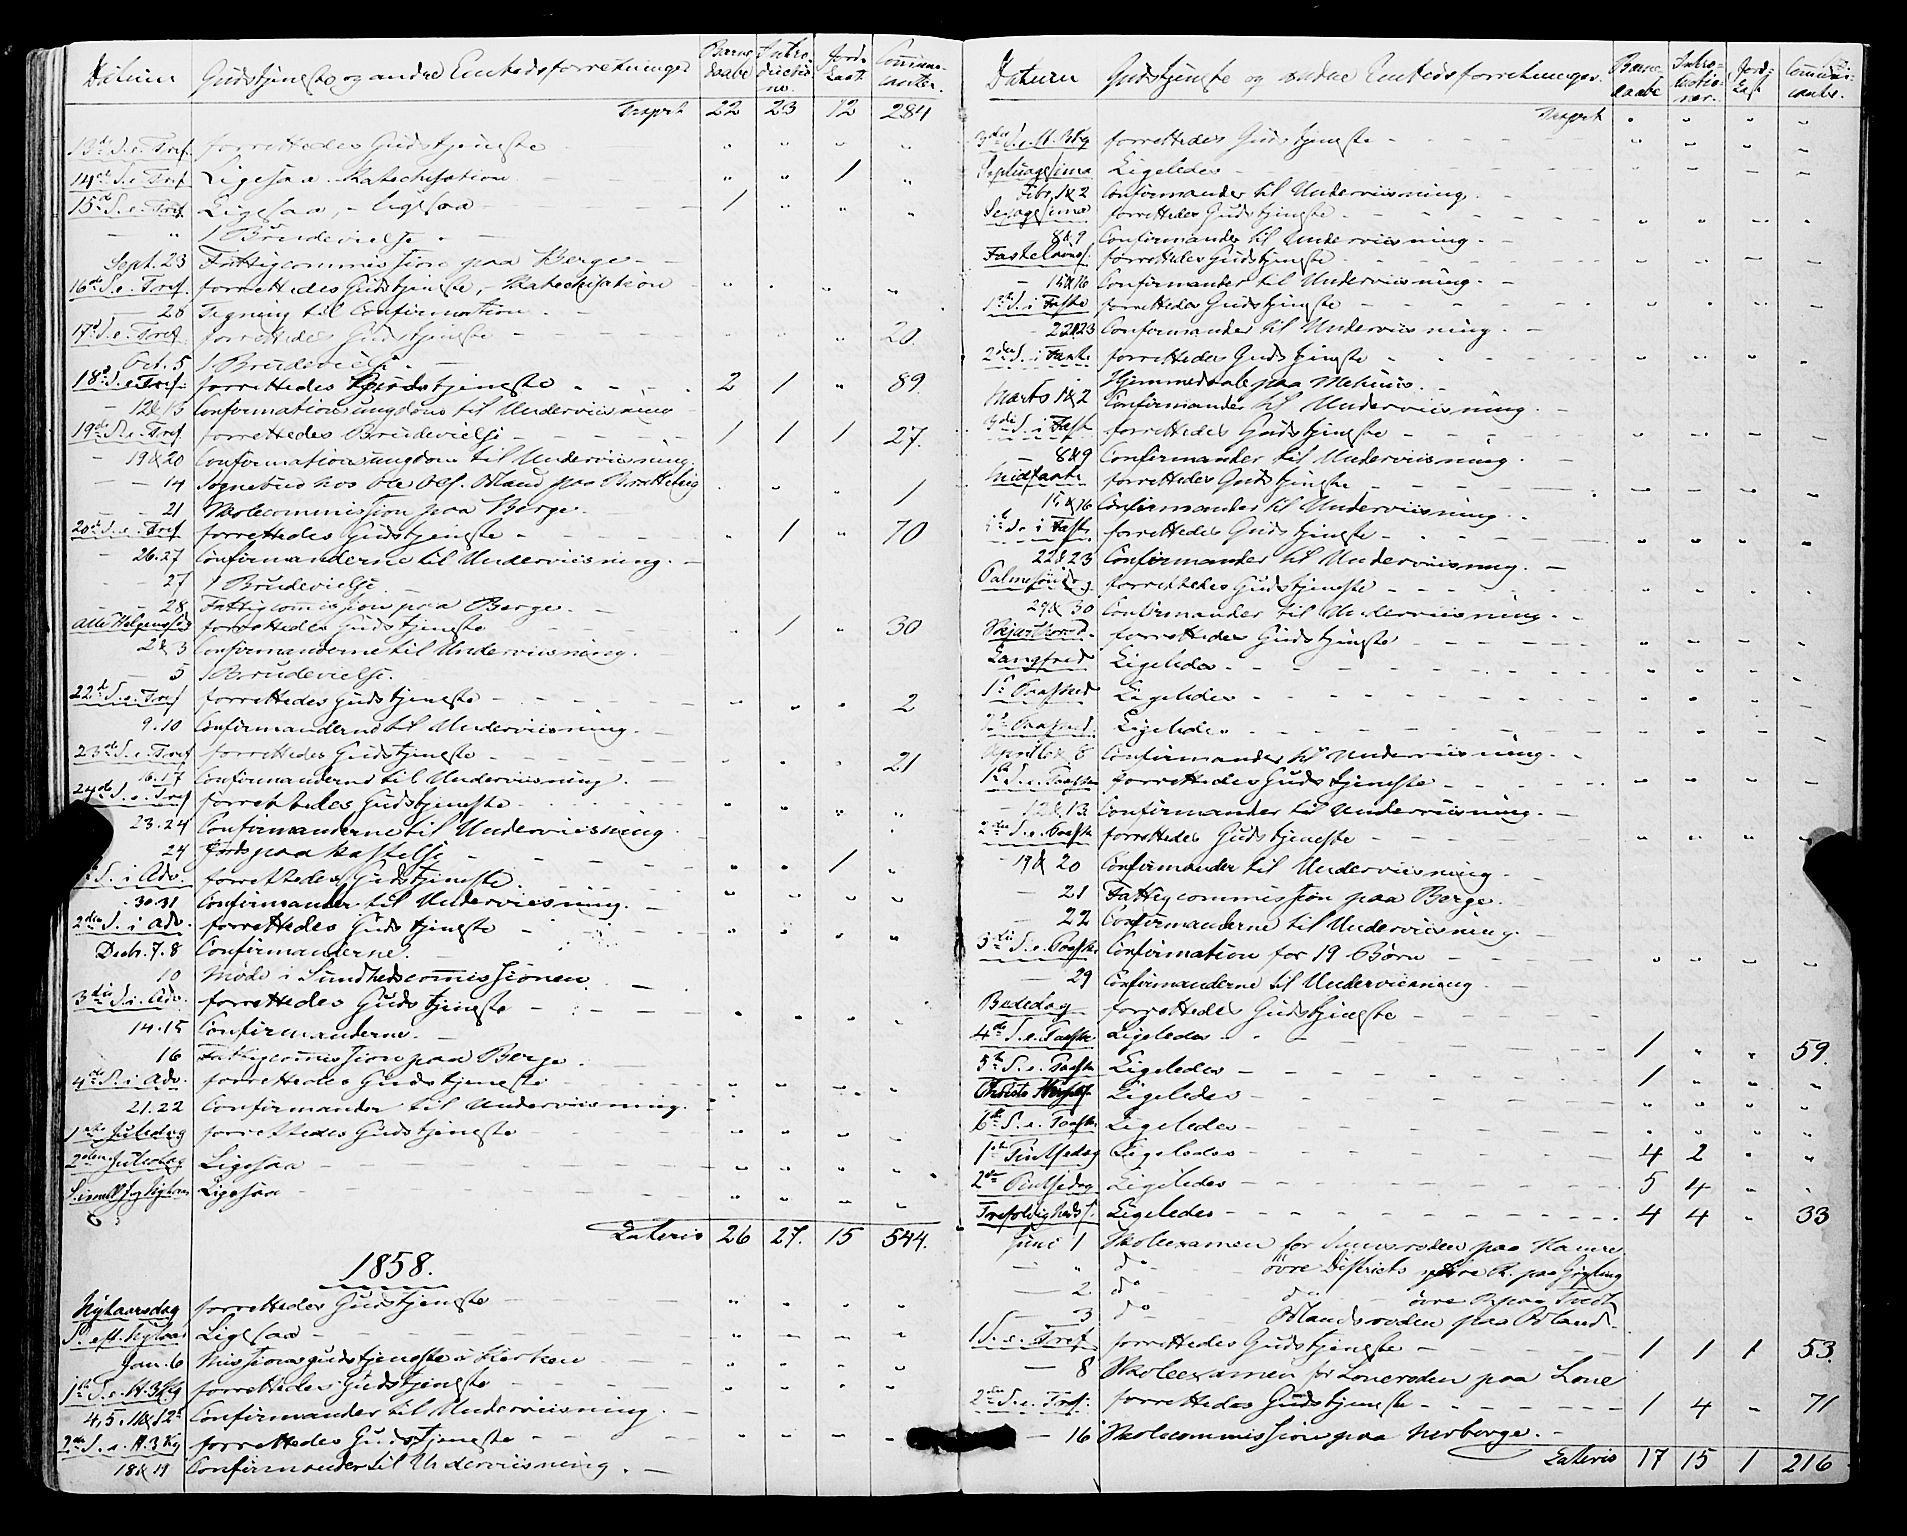 Datum Gudstjeneste og andre Embedsforretninger Barne daabe Introductioner Jord Kast. Communicanter.
Trsprt 22 23 12 284
13de S. e. Tref. forrettedes Gudstjeneste - " " " "
14de S. e. Tref. Ligesaa - Katechisation " " 1 "
15de S. e. Tref Ligesaa, - ligesaa - 1 " " "
- " 1 Brudevielse. -
Sept. 23 Fattigcommission paa Berge. -
16de S. e. Tref. forrettedes Gudstjeneste, Katechisation " " " "
- 28 Tegning til Confirmation.
17de S. e. Tref. forrettedes Gudstjeneste - " " " 20.
Oct. 5 1 Brudevielse. -
18de S. e. Tref. forrettedes Gudstjeneste - 2 1 " 89.
- 12&13 Confirmationsungdom til Underviisning
19de S. e. Tref. forrettedes Brudevielse - 1 1 1 27.
- 19&20 Confirmationsungdom til Underviisning.
- 14 Sognebud hos Ole Ols. paa " " " 1
- 21 Skolecommission paa Berge.
20de S. e. Tref forrettedes Gudstjeneste - " 1 " 70
- 26.27 Confirmanderne til Underviisning. -
- 27 1 Brudevielse. -
- 28 Fattigcommission paa Berge. -
Alle Helgensd. forrettedes Gudstjeneste " 1 " 30
2&3 Confirmanderne til Underviisning. -
- 5 1 Brudevielse.
22de S. e. Tref forrettedes Gudstjeneste - " " " 2
9.10 Confirmanderne til Underviisning. -
23de S. e. Tref forrettedes Gudstjeneste - " " " 21
16.17 Confirmanderne til Underviisning. -
24de S. e. Tref forrettedes Gudstjeneste - " " " "
23.24 Confirmanderne til Underviisning.
24 Jords paa - " " 1 "
S. i Adv. forrettedes Gudstjeneste. - " " " "
30.31 Confirmander til Underviisning. -
2den S. i Adv. forrettedes Gudstjeneste - " " " "
Decbr. 7.8 Confirmanderne. -
10 Møde i Sundhedscommissionen. -
3die S. i Adv. forrettedes Gudstjeneste - " " " "
14.15 Confirmanderne. -
16 Fattigcommission paa Berge. -
4de S. i Adv. forrettedes Gudstjeneste " " " "
21.22 Confirmander til Underviisning. -
1ste Juledag forrettedes Gudstjeneste " " " "
2den Juledag Ligesaa - " " " "
S. imell. Jul og Nytaar Ligesaa - " " " "
Lateris 26 27. 15 544.
1858.
Nytaarsdag forrettedes Gudstjeneste - " " " "
S. eft. Nytaar Ligesaa - " " " "
Jan. 6 Missionsgudstjeneste i Kirken - " " " "
1ste S. e. H. 3 Kg forrettedes Gudstjeneste - " " " "
4, 5. 11&12 Confirmander til Underviisning. -
2den S. e. H. 3 Kg forrettedes Gudstjeneste - " " " "
18&19 Confirmander til Underviisning. -
Datum Gudstjeneste og andre Embedsforretninger. Barne daabe Introductioner. Jord Kast Communicanter.
Trsprt " " " "
3die S. e. H. 3 Kg forrettedes Gudstjeneste - " " " "
Septuagesima Ligeledes - " " " "
Febr. 1&2 Confirmander til Underviisning. -
Sexagesima forrettedes Gudstjeneste - " " " "
8&9 Confirmander til Underviisning. -
Fastelavns. forrettedes Gudstjeneste - " " " "
- 15&16 Confirmander til Underviisning. -
1ste S. i Faste forrettedes Gudstjeneste - " " " "
22&23 Confirmander til Underviisning. -
2den S. i Faste forrettedes Gudstjeneste - " " " "
Hjemmedaab paa. -
Marts 1&2 Confirmander til Underviisning. -
3die S. i Fast. forrettedes Gudstjeneste - " " " "
- 8&9 Confirmander til Underviisning. -
Midfaste forrettedes Gudstjeneste - " " " "
15&16 Confirmander til Underviisning. -
S. i Faste forrettedes Gudstjeneste - " " " "
22&23 Confirmander til Underviisning. -
Palmesøndag forrettedes Gudstjeneste - " " " "
29&30 Confirmander til Underviisning. -
Skjærthorsd. forrettedes Gudstjeneste - " " " "
Langfred. Ligeledes. - " " " "
1ste Paaskед Ligeledes - " " " "
2den Paasked. Ligeledes - " " " "
April 6 Confirmander til Underviisning. -
1ste S. e. Paaske forrettedes Gudstjeneste - " " " "
- 12&13 Confirmander til Underviisning. -
2den S. e. Paaske forrettedes Gudstjeneste - " " " "
- 19& 20 Confirmander til Underviisning. -
- 21 Fattigcommission paa Berge. -
- 22 Confirmanderne til Underviisning. -
3die S. e. Paaske Confirmation for 19 Børn - " " " "
- 29 Confirmanderne til Underviisning -
Bededag forrettedes Gudstjeneste -
4de S. e. Paaske Ligeledes - 1 " " 59.
5te S. e. Paaske Ligeledes - 1 " " "
Christi Himmelf. Ligeledes - " " " "
6te S. e. Paaske Ligeledes - " " " "
1ste Pintsedag Ligeledes - 4 2 " "
2den Pintsedag Ligeledes - 5 4 " "
Trefoldigheds S. Ligeledes - 4 4 " 33
Juni 1 Skoleexamen for paa Hamre.
- " do - øvre Districts paa
- 2 do - do - øvre R. paa Tvedt
- 3 do - roden paa
1 S. e. Tref forrettedes Gudstjeneste - 1 1 1 53.
- 8 Skoleexamen for Loneroden paa Lone
2den S. e. Tref. forrettedes Gudstjeneste - 1 4 " 71
- 16 Skolecommission paa. -
Lateris 17 15 1 216